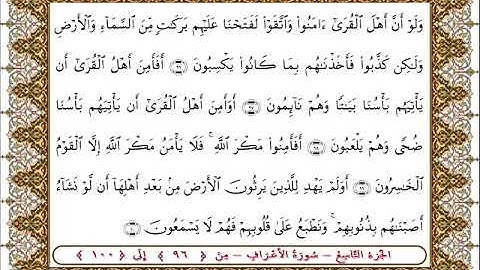 وَلَوۡ أَنَّ أَهۡلَ ٱلۡقُرَىٰٓ ءَامَنُواْ وَٱتَّقَوۡاْ لَفَتَحۡنَا عَلَيۡهِم بَرَكَٰتٖ مِّنَ ٱلسَّمَآءِ وَٱلۡأَرۡضِ
وَلَٰكِن كَذَّبُواْ فَأَخَذۡنَٰهُم بِمَا كَانُواْ يَكۡسِبُونَ ۝٩٦ أَفَأَمِنَ أَهۡلُ ٱلۡقُرَىٰٓ أَن
يَأۡتِيَهُم بَأۡسُنَا بَيَٰتٗا وَهُمۡ نَآئِمُونَ ۝٩٧ أَوَأَمِنَ أَهۡلُ ٱلۡقُرَىٰٓ أَن يَأۡتِيَهُم بَأۡسُنَا
ضُحٗى وَهُمۡ يَلۡعَبُونَ ۝٩٨ أَفَأَمِنُواْ مَكۡرَ ٱللَّهِۚ فَلَا يَأۡمَنُ مَكۡرَ ٱللَّهِ إِلَّا ٱلۡقَوۡمُ
ٱلۡخَٰسِرُونَ ۝٩٩ أَوَلَمۡ يَهۡدِ لِلَّذِينَ يَرِثُونَ ٱلۡأَرۡضَ مِنۢ بَعۡدِ أَهۡلِهَآ أَن لَّوۡ نَشَآءُ
أَصَبۡنَٰهُم بِذُنُوبِهِمۡۚ وَنَطۡبَعُ عَلَىٰ قُلُوبِهِمۡ فَهُمۡ لَا يَسۡمَعُونَ ۝١٠٠
الجزء التاسع - سورة الأعراف - من ﴿ ٩٦ ﴾ إلى ﴿ ١٠٠ ﴾